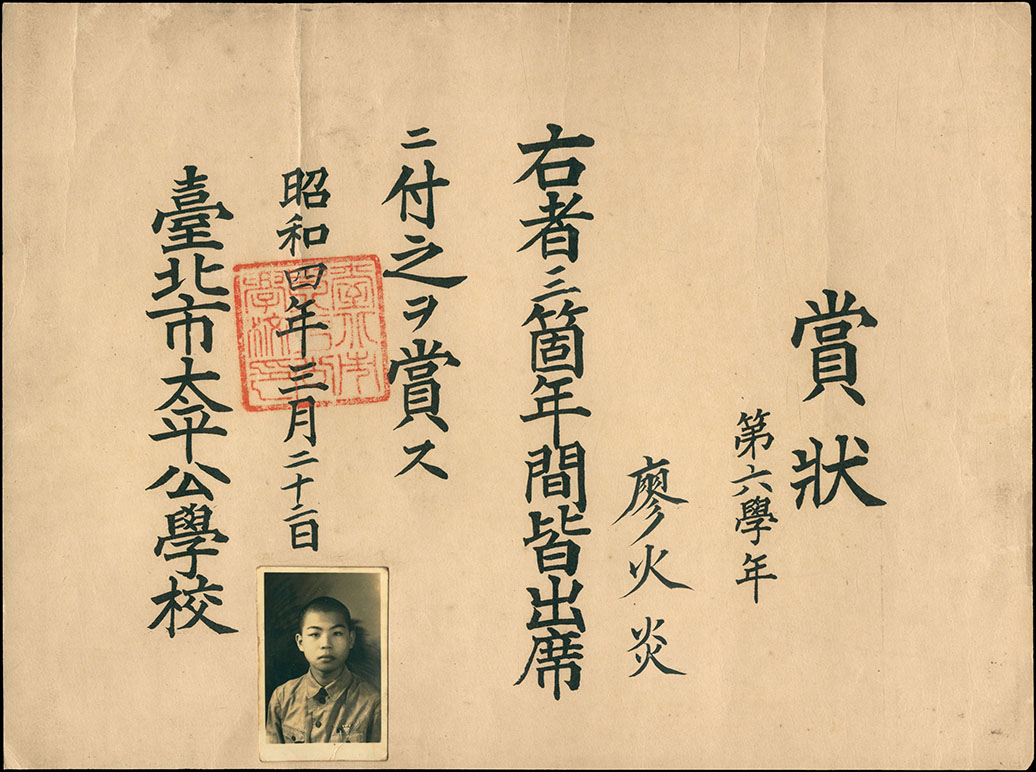 賞狀
第六學年
廖火炎
右者三箇年間皆出席
ニ付之ヲ賞ス
昭和四年三月二十二日
臺北市太平公學校